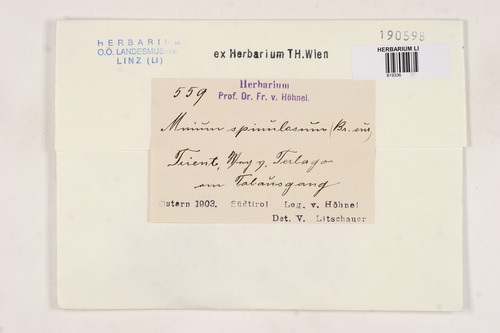 HERBARIUM
O.Ö. LANDESMUSEUM
LINZ (LI)
ex Herbarium TH.Wien
190598
HERBARIUM LI
559
Herbarium
Prof. Dr. Fr. v. Höhnel.
Mnium spinulosum (Br. eur)
Trient, Weg n. Terlago
am Talausgang
Ostern 1903. Südtirol Leg. v. Höhnel
Det. V. Litschauer